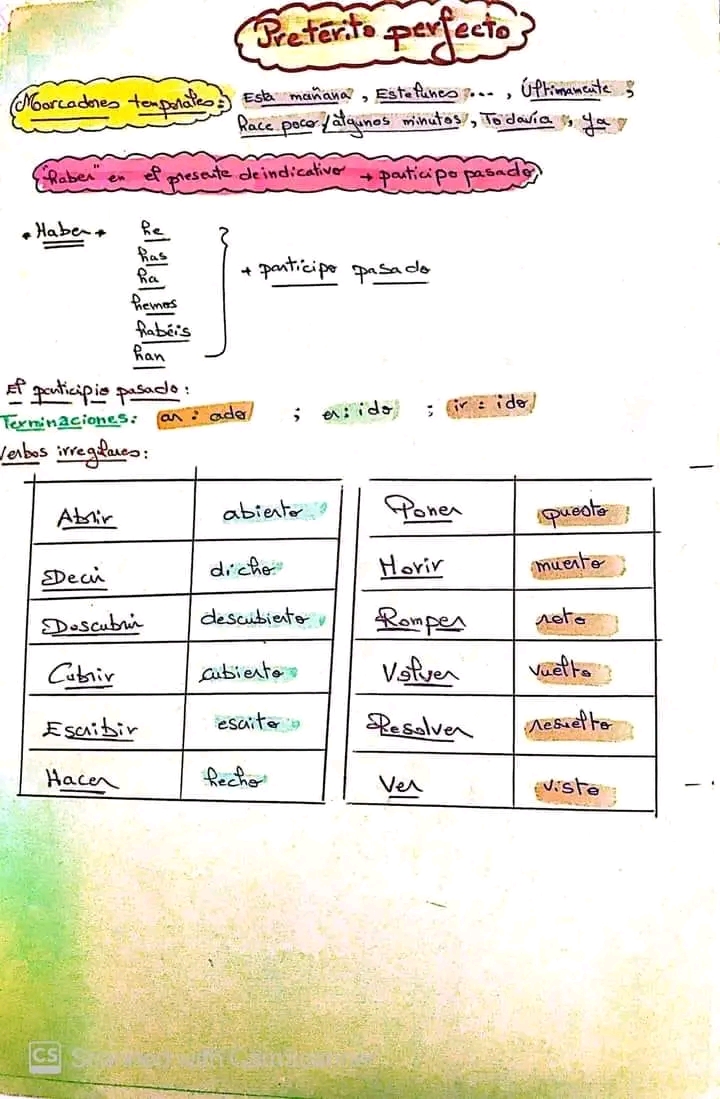 Pretérito perfecto
Marcadores temporales: Esta mañana, Este lunes..., Últimamente,
hace poco / algunos minutos, Todavía, ya
"haber" en el presente de indicativo + participo pasado
* Haber → he
has
ha
hemos
habéis
han
+ participo pasado
El participio pasado:
Terminaciones: ar : ado ; er : ido ; ir : ido
Verbos irregulares:
Abrir abierto Poner puesto
Decir dicho Morir muerto
Descubrir descubierto Romper roto
Cubrir cubierto Volver vuelto
Escribir escrito Resolver resuelto
Hacer hecho Ver visto
CS Scanned with CamScanner